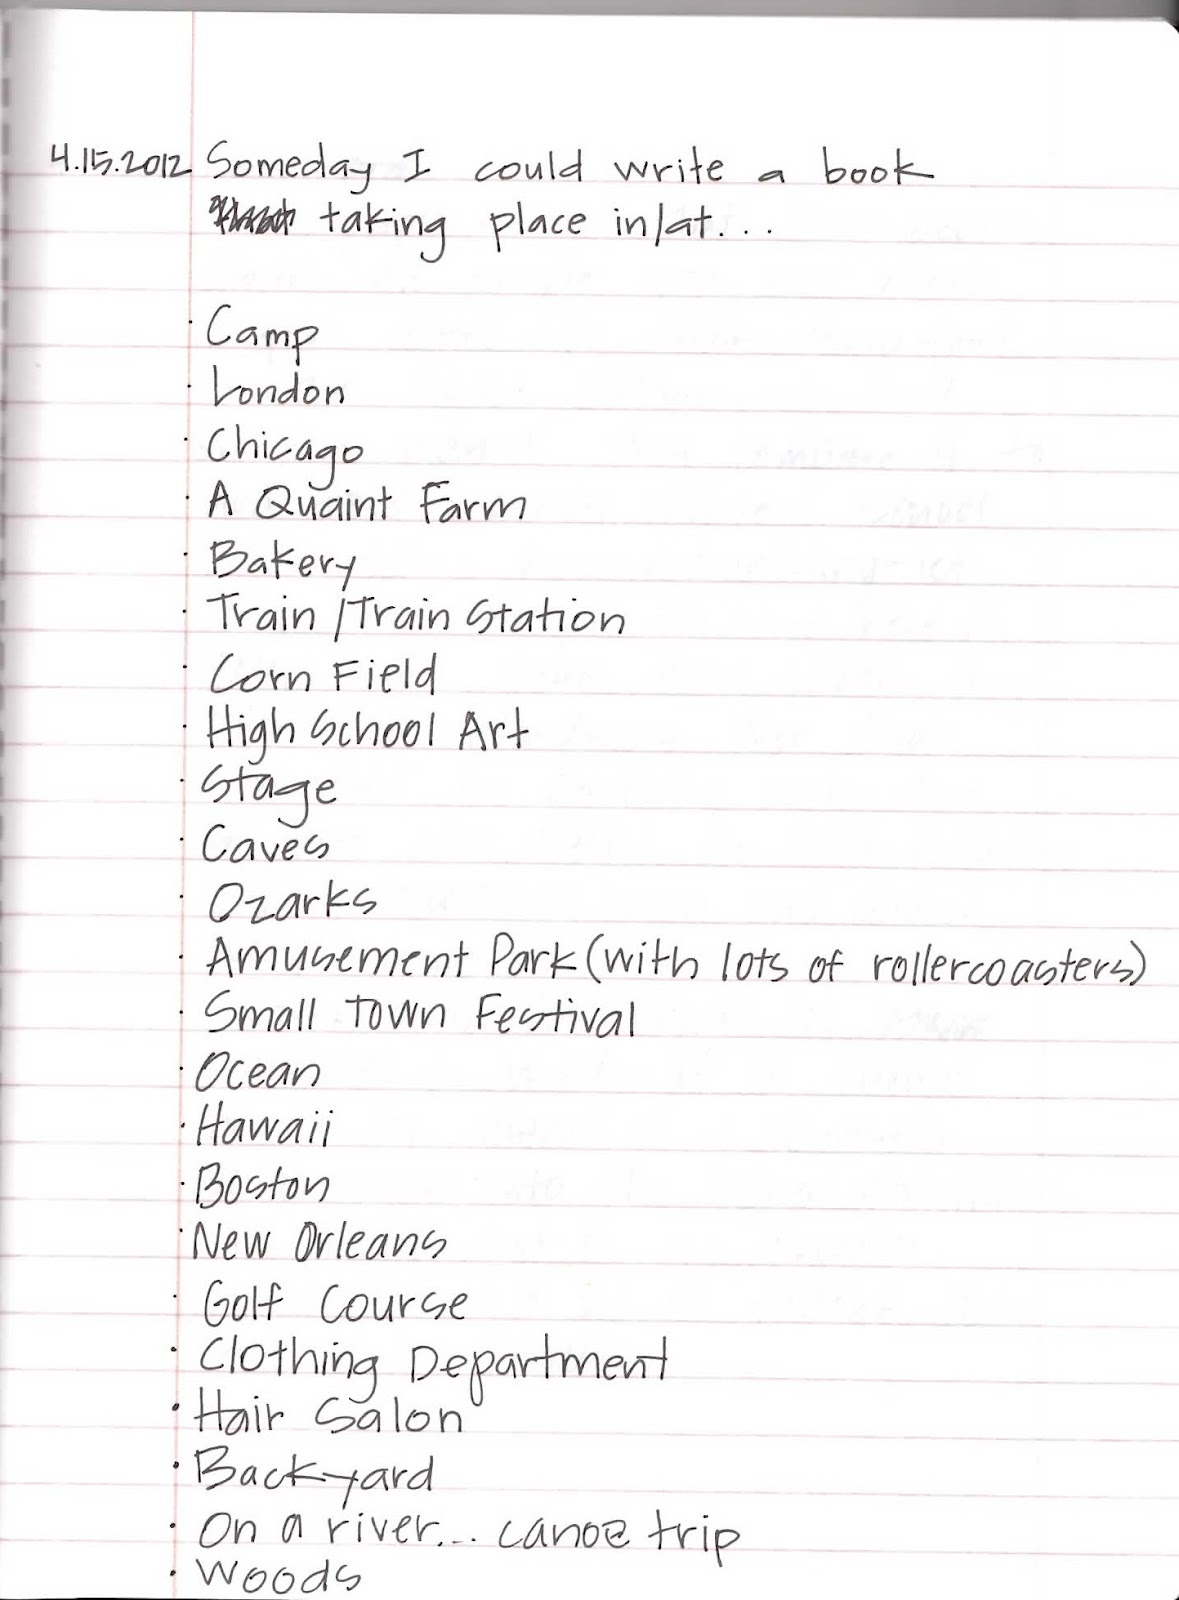 4.15.2012 Someday I could write a book
taking place in/at...
· Camp
· London
· Chicago
· A Quaint Farm
· Bakery
· Train/Train Station
· Corn Field
· High School Art
· Stage
· Caves
· Ozarks
· Amusement Park (with lots of rollercoasters)
· Small Town Festival
· Ocean
· Hawaii
· Boston
· New Orleans
· Golf Course
· Clothing Department
· Hair Salon
· Backyard
· On a river... canoe trip
· Woods